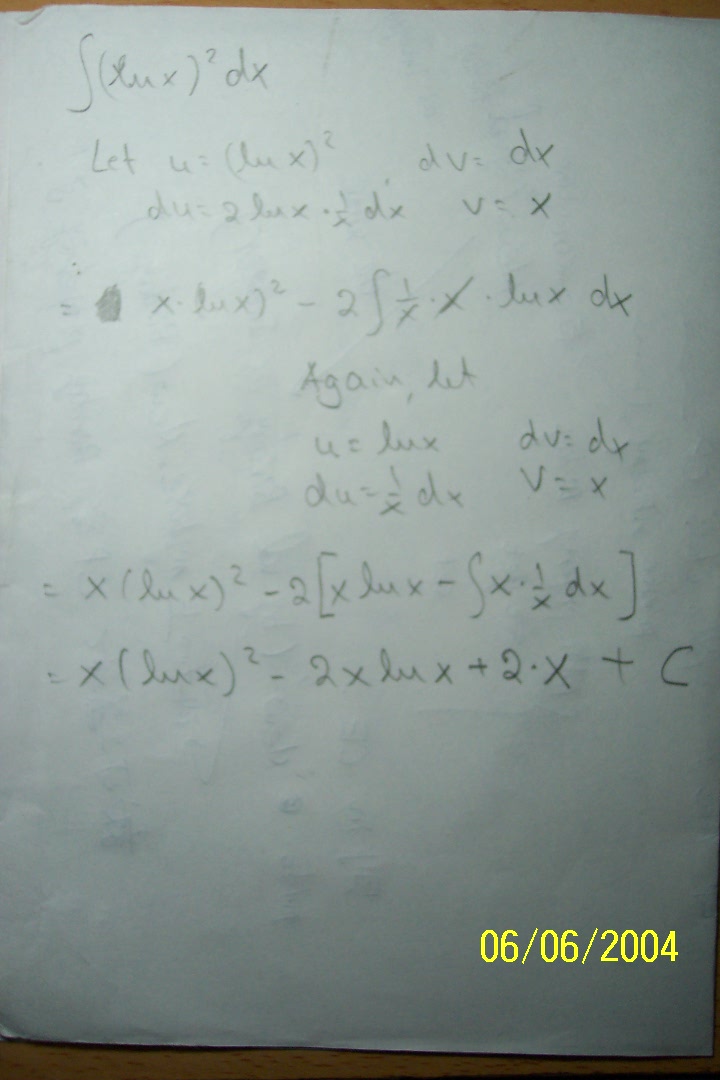 ∫(ln x)² dx
Let u = (ln x)², dv = dx
du = 2 ln x · 1/x dx v = x
= x · ln x)² - 2 ∫ 1/x · x · ln x dx
Again, let
u = ln x dv = dx
du = 1/x dx v = x
= x (ln x)² - 2 [x ln x - ∫ x · 1/x dx]
= x (ln x)² - 2x ln x + 2 · x + C
06/06/2004